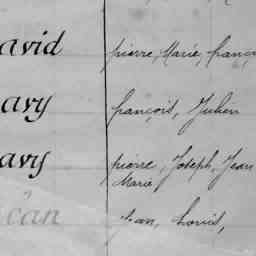 avid pierre, Marie, franço
avy françois, Julien
avy pierre, Joseph, Jean
Marie
éan Jean, Louis,